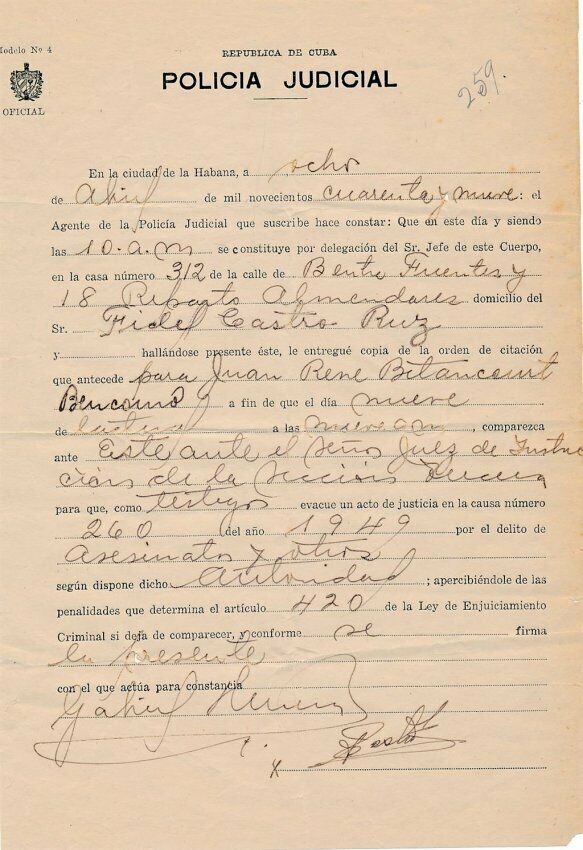 Modelo Nº 4
REPUBLICA DE CUBA
POLICIA JUDICIAL
OFICIAL
259.
En la ciudad de la Habana, a ocho
de Abril de mil novecientos cuarenta y nueve: el
Agente de la Policía Judicial que suscribe hace constar: Que en este día y siendo
las 10 a.m se constituye por delegación del Sr. Jefe de este Cuerpo,
en la casa número 312 de la calle de Fuentes y
18 Reparto Almendares domicilio del
Sr. Fidel Castro Ruz
y hallándose presente éste, le entregué copia de la orden de citación
que antecede para Juan Rene Bitancourt
Bencomo a fin de que el día nueve
de a las nueve am, comparezca
ante Este ante el Señor Juez de Instruc
cion de la Seccion
para que, como testigo evacue un acto de justicia en la causa número
260 del año 1949 por el delito de
Asesinato y otros
según dispone dicho Autoridad; apercibiéndole de las
penalidades que determina el artículo 420 de la Ley de Enjuiciamiento
Criminal si deja de comparecer, y conforme se firma
la presente
con el que actúa para constancia